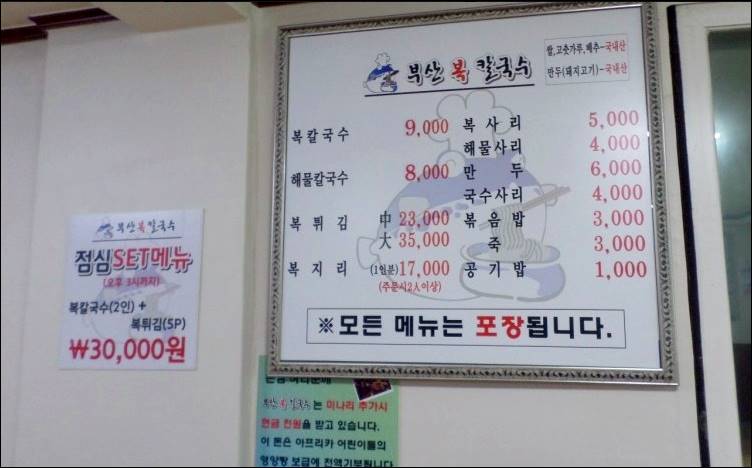 부산 복 칼국수
쌀,고춧가루,배추-국내산
만두(돼지고기)-국내산
복칼국수 9,000
해물칼국수 8,000
복튀김 中 23,000
大 35,000
복지리 (1인분) 17,000
(주문시2人이상)
복사리 5,000
해물사리 4,000
만두 6,000
국수사리 4,000
볶음밥 3,000
죽 3,000
공기밥 1,000
※모든 메뉴는 포장됩니다.
부산 복 칼국수
점심SET메뉴
(오후 3시까지)
복칼국수(2인) +
복튀김(5P)
₩30,000원
부산 복 칼국수는 미나리 추가시
현금 천원을 받고 있습니다.
이 돈은 아프리카 어린이들의
영양탕 보급에 전액기부됩니다